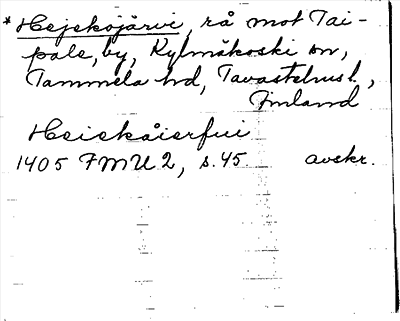 * Hejskojärvi, rå mot Tai-
pale, by, Kylmäkoski sn,
Tammela hd, Tavastehus l.,
Finland
Heiskåierfui
1405 FMU 2, s. 45 avskr.